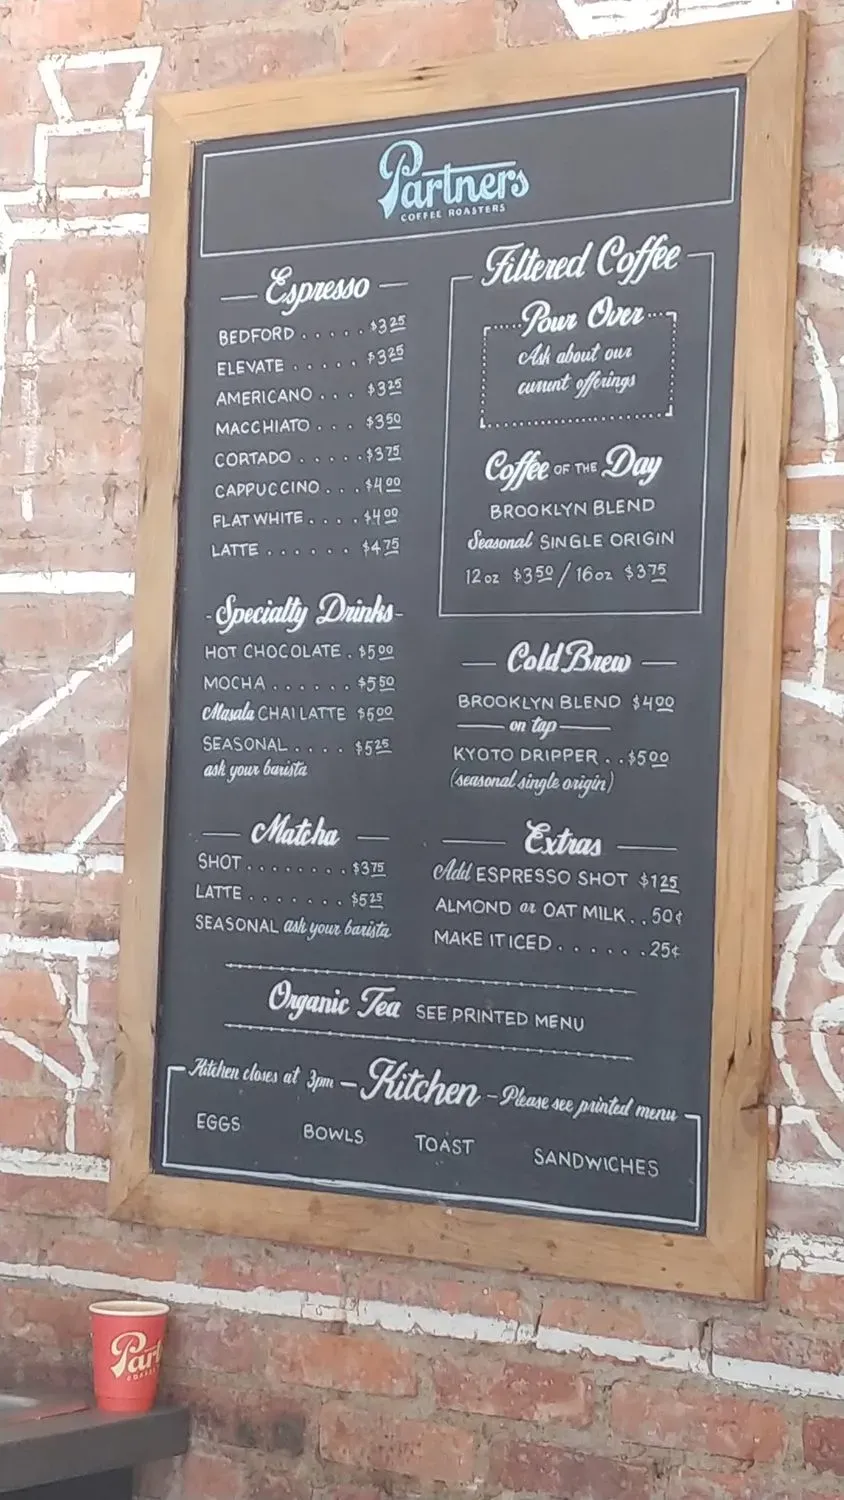 Partners
COFFEE ROASTERS
Espresso
BEDFORD . . . . . $3.25
ELEVATE . . . . . . $3.25
AMERICANO . . . $3.25
MACCHIATO . . . $3.50
CORTADO . . . . . $3.75
CAPPUCCINO . . . $4.00
FLAT WHITE . . . . $4.00
LATTE . . . . . . $4.75
Specialty Drinks
HOT CHOCOLATE . $5.00
MOCHA . . . . . . $5.50
Masala CHAI LATTE $5.00
SEASONAL . . . . $5.25
ask your barista
Matcha
SHOT . . . . . . . . $3.75
LATTE . . . . . . . $5.25
SEASONAL ask your barista
Filtered Coffee
Pour Over
Ask about our
current offerings
Coffee OF THE Day
BROOKLYN BLEND
Seasonal SINGLE ORIGIN
12oz $3.50 / 16oz $3.75
Cold Brew
BROOKLYN BLEND $4.00
on tap
KYOTO DRIPPER . . $5.00
(seasonal single origin)
Extras
Add ESPRESSO SHOT $1.25
ALMOND or OAT MILK . . 50¢
MAKE IT ICED . . . . . . . 25¢
Organic Tea SEE PRINTED MENU
Kitchen closes at 3pm – Kitchen – Please see printed menu
EGGS BOWLS TOAST SANDWICHES